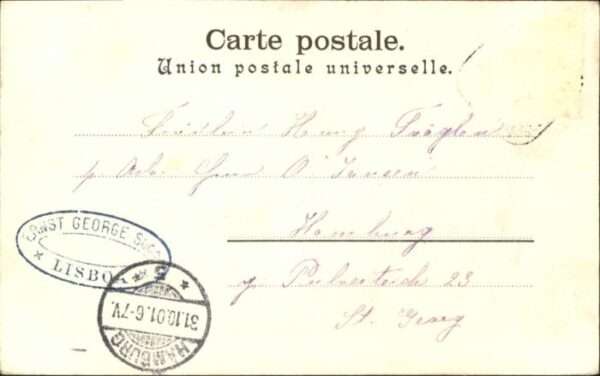 Carte postale.
Union postale universelle.
Fräulein Henny
p. Adr. Herrn O. Jensen
Hamburg
Pulverteich 23
St. Georg
ERNST GEORGE
LISBOA
HAMBURG
31.10.01.6-7V.
5